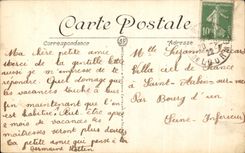 Carte Postale
Correspondance
Adresse
Ma chère petite amie
Merci de ta gentille lettre
aussi je m'empresse de te
répondre. Quel dommage
que les vacances touche à leur
fin maintenant que l'on
est habitué. Enfin, après
2 mois de vacances les
maîtresses seront plus douces
Ta petite amie qui pense à toi
Germaine
Mlle Suzanne
Villa ciel de France
à Saint-Aubin-sur-mer
Par Bourg d'un
Seine-Inférieure
10